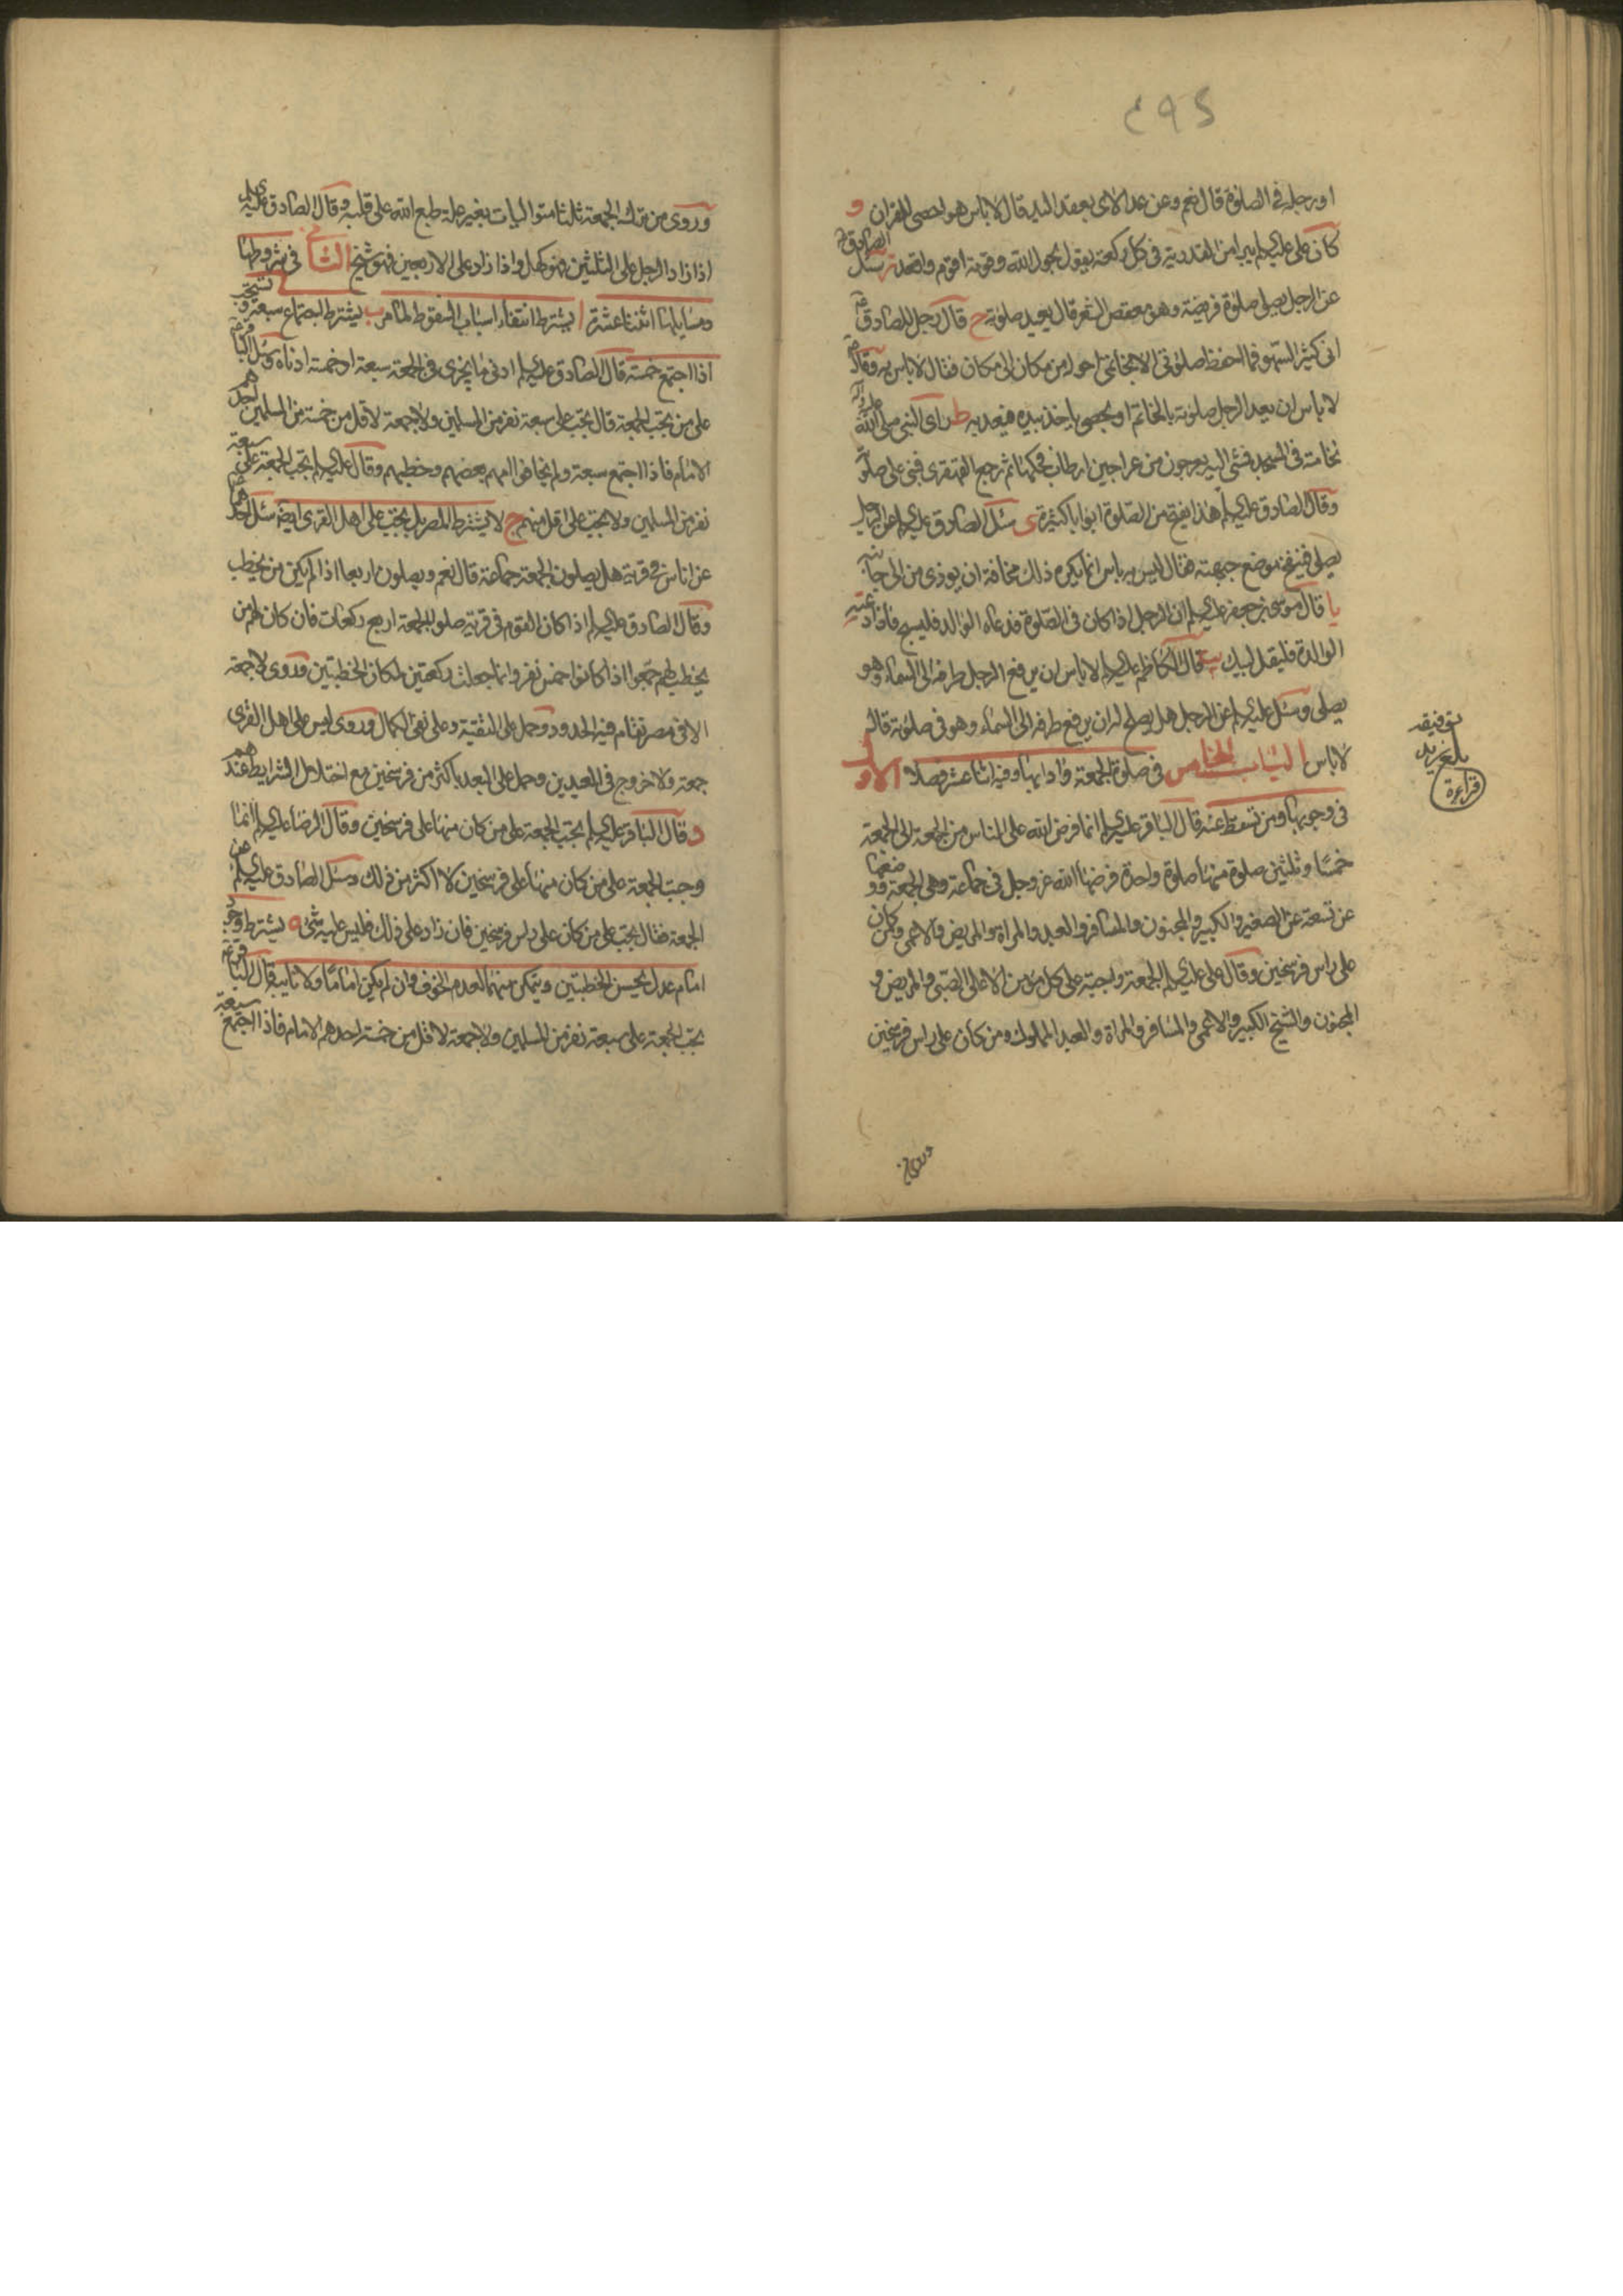 ٤٩٢
او رجله فى الصلوة قال نعم وعن عد الاى بعقد اليد قال لا باس هو احصى للقران و
كان على عليه السلم يبرا من القدرية فى كل ركعة يقول بحول الله وقوته اقوم واقعد ز سئل الصادق
عن الرجل يصلى صلوة فريضة وهو معقص الشعر قال يعيد صلوته ح قال رجل للصادق
انى كثير السهو فما احفظ صلوتى الا بخاتمى احوله من مكان الى مكان فقال لا باس به وقال
لا باس ان يعد الرجل صلوته بالخاتم او بحصى ياخذ بيده فيعد به ط راى النبى صلى الله عليه واله
نخامة فى المسجد فمشى اليه بعرجون من عراجين ارطاب فحكها ثم رجع القهقرى فبنى على صلوته
وقال الصادق عليه السلم هذا يفتح من الصلوة ابوابا كثيرة ى سئل الصادق عليه السلم عن الرجل
يصلى فينفخ موضع جبهته فقال ليس به باس انما يكره ذلك مخافة ان يوذى من الى جانبه
يا قال موسى بن جعفر عليه السلم ان الرجل اذا كان فى الصلوة فدعاه الوالد فليسبح فاذا دعته
الوالدة فليقل لبيك يب قال الكاظم عليه السلم لا باس ان يرفع الرجل طرفه الى السماء وهو
يصلى وسئل عليه السلم عن الرجل هل يصلح له ان يرفع طرفه الى السماء وهو فى صلوته قال
لا باس الباب الخامس فى صلوة الجمعة وادابها وفيه اثنا عشر فصلا الاول
فى وجوبها ومن تسقط عنه قال الباقر عليه السلم انما فرض الله على الناس من الجمعة الى الجمعة
خمسا وثلثين صلوة منها صلوة واحدة فرضها الله عز وجل فى جماعة وهى الجمعة ووضعها
عن تسعة عن الصغير والكبير والمجنون والمسافر والعبد والمراة والمريض والاعمى ومن كان
على راس فرسخين وقال على عليه السلم الجمعة واجبة على كل مؤمن الا على الصبى والمريض و
المجنون والشيخ الكبير والاعمى والمسافر والمراة والعبد المملوك ومن كان على راس فرسخين
وروى من
بلغ زيد
توفيقه
قراءة
وروى من ترك الجمعة ثلثا متواليات بغير علة طبع الله على قلبه وقال الصادق عليه السلم
اذا زاد الرجل على الثلثين فهو كهل واذا زاد على الاربعين فهو شيخ الثانى فى شروطها
ومسايلها اثنتا عشرة ا يشترط انتفاء اسباب السقوط لما مر ب يشترط اجتماع سبعة وتستحب
اذا اجتمع خمسة قال الصادق عليه السلم ادنى ما يجزى فى الجمعة سبعة او خمسة ادناه وسئل الباقر
على من تجب الجمعة قال تجب على سبعة نفر من المسلمين ولا جمعة لاقل من خمسة من المسلمين احدهم
الامام فاذا اجتمع سبعة ولم يخافوا امهم بعضهم وخطبهم وقال عليه السلم تجب الجمعة على سبعة
نفر من المسلمين ولا تجب على اقل منهم ج لا يشترط المصر بل تجب على اهل القرى ايضا سئل احدهما
عن اناس فى قرية هل يصلون الجمعة جماعة قال نعم ويصلون اربعا اذا لم يكن من يخطب
وقال الصادق عليه السلم اذا كان القوم فى قرية صلوا الجمعة اربع ركعات فان كان لهم من
يخطب لهم جمعوا اذا كانوا خمس نفر وانما جعلت ركعتين لمكان الخطبتين وروى لا جمعة
الا فى مصر تقام فيه الحدود وحمل على التقية وعلى نفى الكمال وروى ليس على اهل القرى
جمعة ولا خروج فى العيدين وحمل على البعد باكثر من فرسخين مع اختلال الشرايط عندهم
د قال الباقر عليه السلم تجب الجمعة على من كان منها على فرسخين وقال الرضا عليه السلم انما
وجبت الجمعة على من كان منها على فرسخين لا اكثر من ذلك وسئل الصادق عليه السلم عن
الجمعة فقال تجب على من كان على راس فرسخين فان زاد على ذلك فليس عليه شئ ه يشترط وجود
امام عدل يحسن الخطبتين ويتمكن منهما لعدم الخوف وان لم يكن اماما ولا نايبه قال الباقر
تجب الجمعة على سبعة نفر من المسلمين ولا جمعة لاقل من خمسة احدهم الامام فاذا اجتمع سبعة